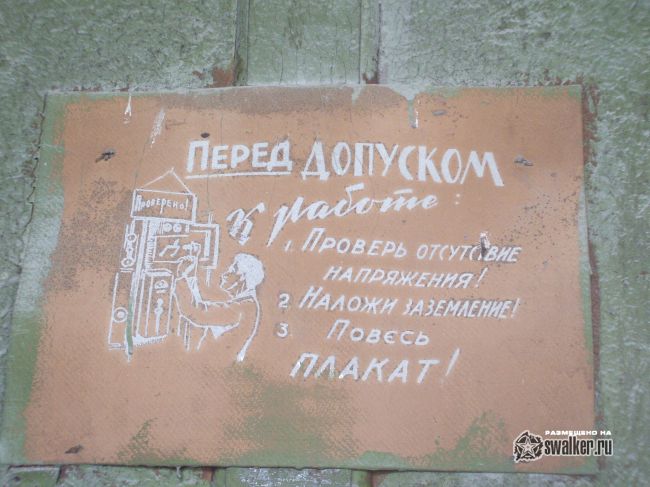 ПЕРЕД ДОПУСКОМ
к работе:
Проверено!
1. ПРОВЕРЬ ОТСУТСТВИЕ
НАПРЯЖЕНИЯ!
2 НАЛОЖИ ЗАЗЕМЛЕНИЕ!
3. ПОВЕСЬ
ПЛАКАТ!
РАЗМЕЩЕНО НА
swalker.ru